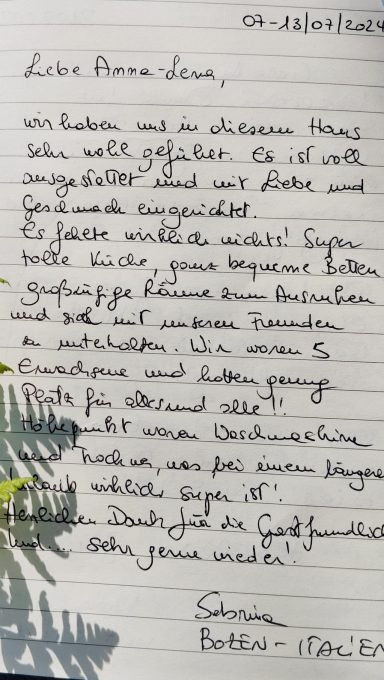 07-13/07/2024
Liebe Anna-Lena,
wir haben uns in diesem Haus
sehr wohl gefühlt. Es ist voll
ausgestattet und mit Liebe und
Geschmack eingerichtet.
Es fehlte wirklich nichts! Super
tolle Küche, ganz bequeme Betten
großzügige Räume zum Ausruhen
und sich mit unseren Freunden
zu unterhalten. Wir waren 5
Erwachsene und hatten genug
Platz für alles und alle!!
Höhepunkt waren Waschmaschine
und Trockner, was bei einem längere
Urlaub wirklich super ist!
Herzlichen Dank für die Gastfreundlich
und.... sehr gerne wieder!
Sabrina
BOZEN - ITALIEN